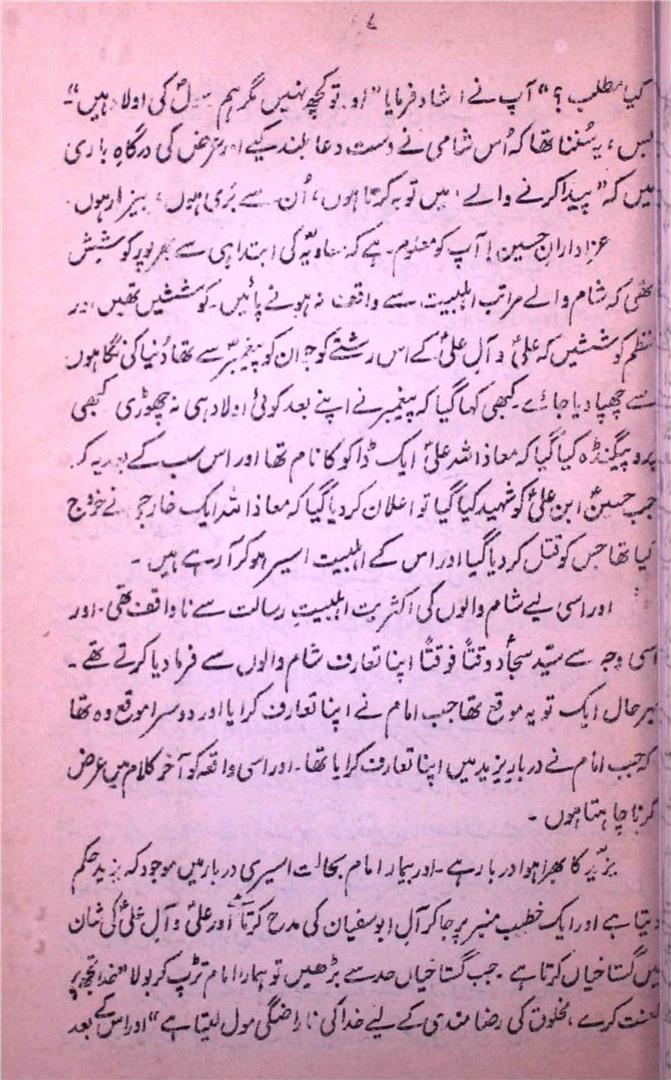 ۷
کیا مطلب؟“ آپ نے ارشاد فرمایا ”اور تو کچھ نہیں مگر ہم رسولؐ کی اولاد ہیں“۔
بس، یہ سُننا تھا کہ اُس شامی نے دست دعا بلند کیے اور عرض کی درگاہِ باری
میں کہ ”پیدا کرنے والے میں توبہ کرتا ہوں، اُن سے بَری ہوں، بیزار ہوں۔
عزادارانِ حسین! آپ کو معلوم ہے کہ معاویہ کی ابتدا ہی سے بھرپور کوشش
تھی کہ شام والے مراتب اہلبیت سے واقف نہ ہونے پائیں۔ کوششیں تھیں اور
منظم کوششیں کہ علیؑ و آلِ علیؑ کے اس رشتے کو جو ان کو پیغمبرؐ سے تھا دُنیا کی نگاہوں
سے چھپا دیا جائے۔ کبھی کہا گیا کہ پیغمبر نے اپنے بعد کوئی اولاد ہی نہ چھوڑی کبھی
پروپیگنڈہ کیا گیا کہ معاذ اللہ علیؑ ایک ڈاکو کا نام تھا اور اس سب کے بعد یہ کہ
جب حسینؑ ابن علیؑ کو شہید کیا گیا تو اعلان کر دیا گیا کہ معاذ اللہ ایک خارجی نے خروج
کیا تھا جس کو قتل کر دیا گیا اور اس کے اہلبیت اسیر ہو کر آ رہے ہیں۔
اور اسی لیے شام والوں کی اکثریت اہلبیتِ رسالت سے ناواقف تھی۔ اور
اسی وجہ سے سیّد سجادؑ وقتاً فوقتاً اپنا تعارف شام والوں سے فرما دیا کرتے تھے۔
بہرحال ایک تو یہ موقع تھا جب امام نے اپنا تعارف کرایا اور دوسرا موقع وہ تھا
کہ جب امام نے دربارِ یزید میں اپنا تعارف کرایا تھا۔ اور اسی واقعہ کو آخر کلام میں عرض
کرنا چاہتا ہوں۔
یزید کا بھرا ہوا دربار ہے۔ اور بیمار امام بحالت اسیری دربار میں موجود کہ یزید حکم
دیتا ہے اور ایک خطیب منبر پر جا کر آلِ ابوسفیان کی مدح کرتا ہے اور علیؑ و آلِ علیؑ کی شان
میں گستاخیاں کرتا ہے۔ جب گستاخیاں حد سے بڑھیں تو ہمارا امام تڑپ کر بولا ”خدا تجھ پر
لعنت کرے، مخلوق کی رضا مندی کے لیے خدا کی ناراضگی مول لیتا ہے“ اور اس کے بعد